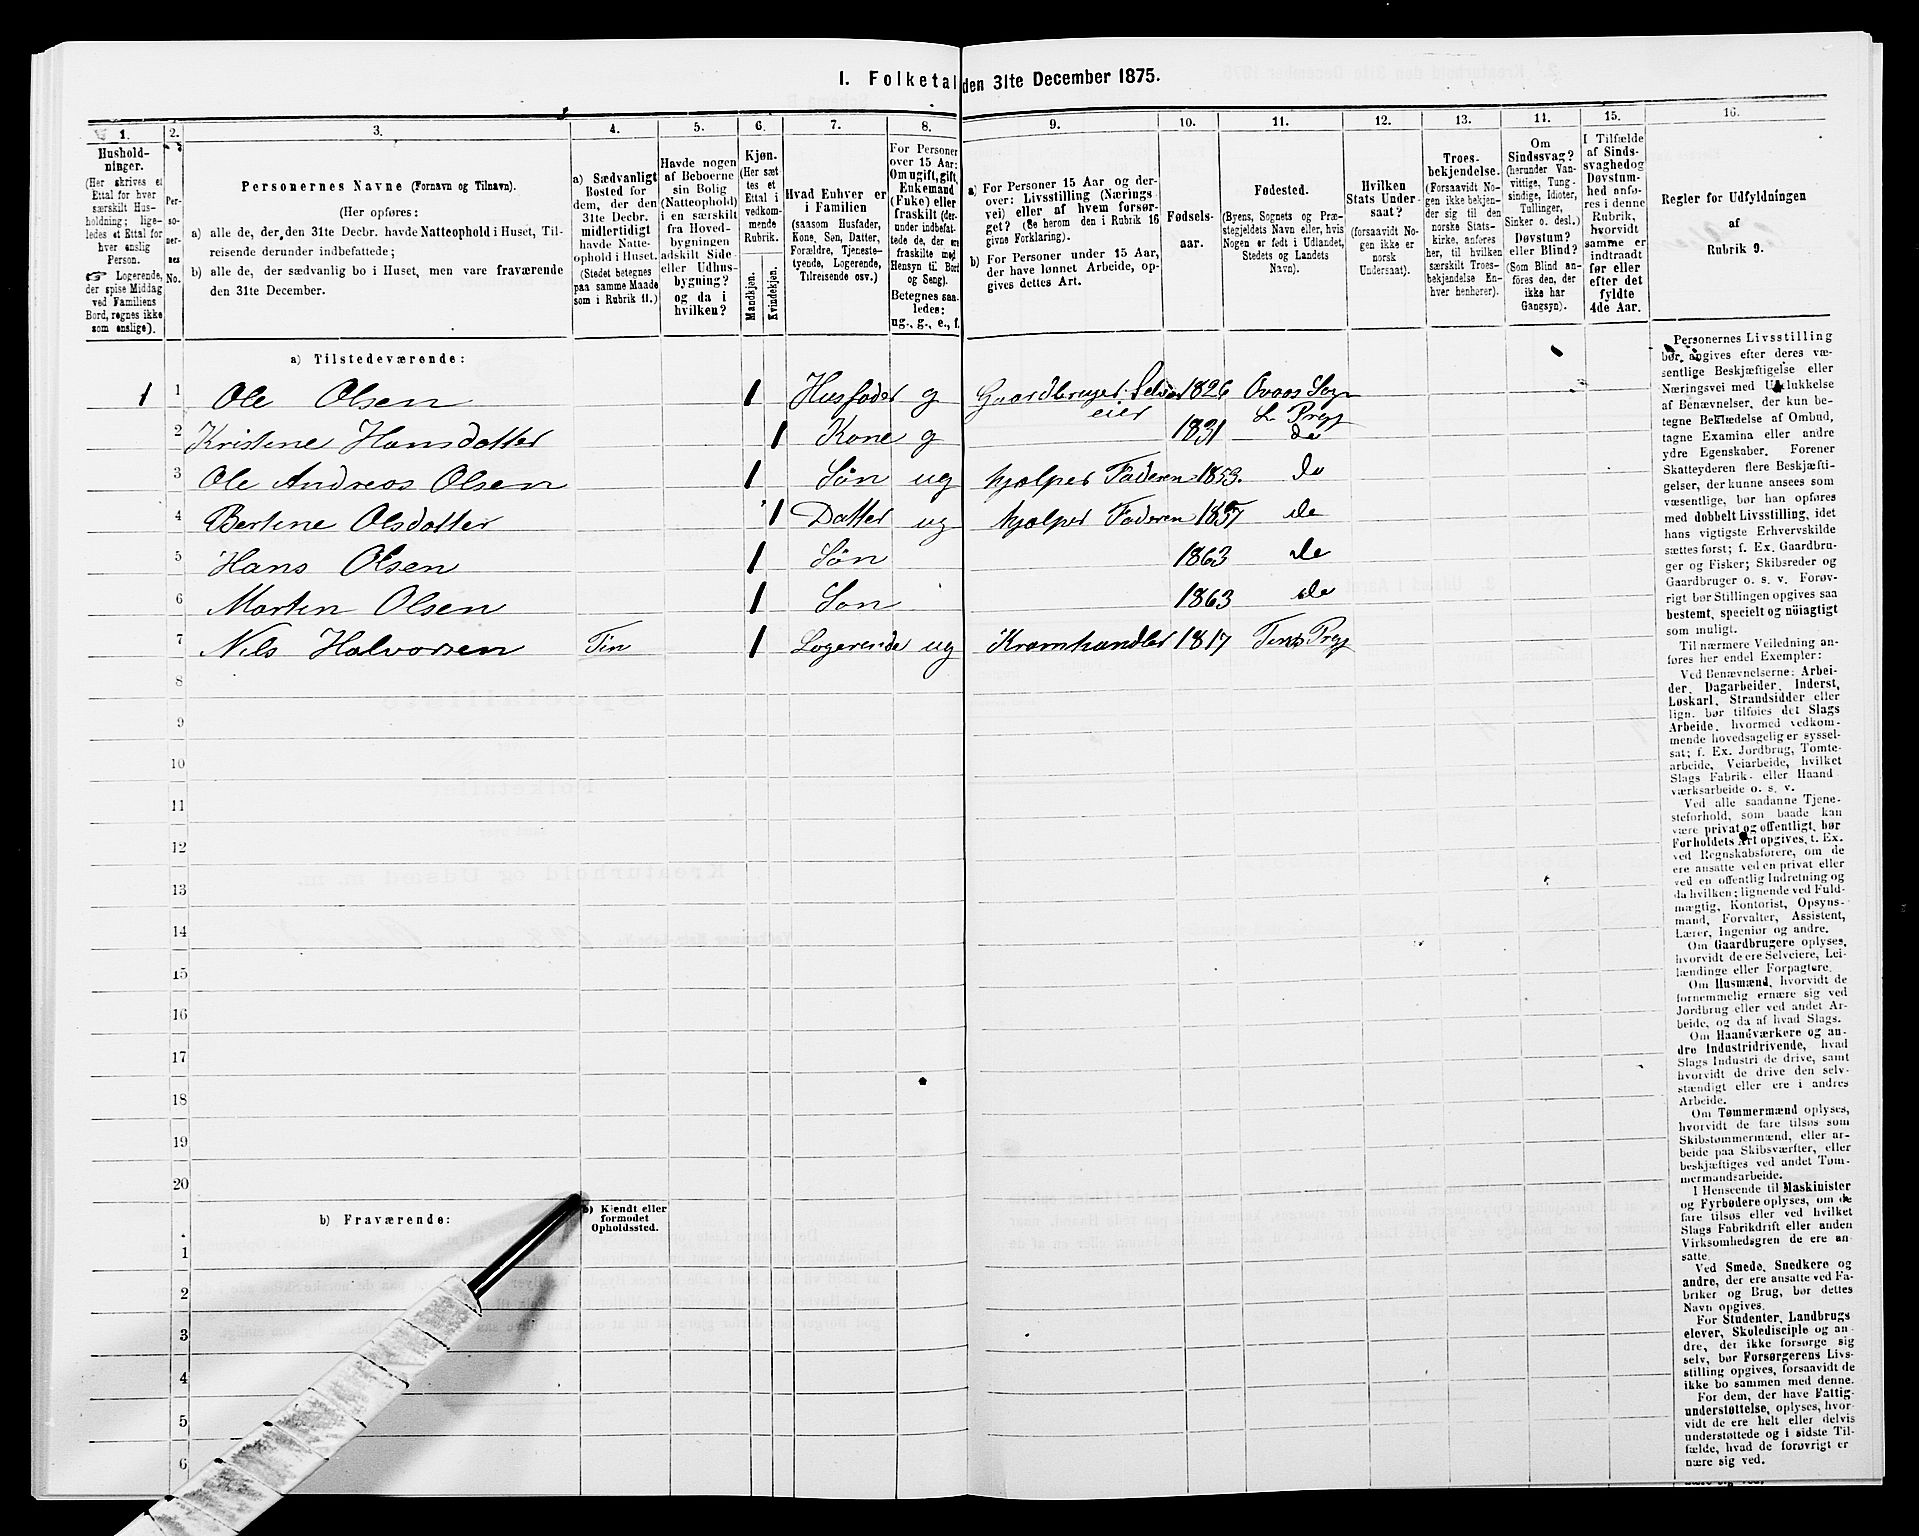 I. Folketal den 31te December 1875.
1. 2. 3. 4. 5. 6. 7. 8. 9. 10. 11. 12. 13. 14. 15. 16.
Hushold-
ninger.
(Her skrives et
Ettal for hver
særskilt Hus-
holdning; lige-
ledes et Ettal for
hver enslig
Person.
☞ Logerende,
der spise Middag
ved Familiens
Bord, regnes ikke
som enslige).
Per-
so-
ner-
nes
No.
Personernes Navne (Fornavn og Tilnavn).
(Her opføres:
a) alle de, der den 31te Decbr. havde Natteophold i Huset, Til-
reisende derunder indbefattede;
b) alle de, der sædvanlig bo i Huset, men vare fraværende
den 31te December.
a) Sædvanligt
Bosted for
dem, der den
31te Decbr.
midlertidigt
havde Natte-
ophold i Huset.
(Stedet betegnes
paa samme Maade
som i Rubrik 11.)
Havde nogen
af Beboerne
sin Bolig
(Natteophold)
i en særskilt
fra Hoved-
bygningen
adskilt Side-
eller Udhus-
bygning?
og da i
hvilken?
Kjøn.
(Her sæt-
tes et
Ettal i
vedkom-
mende
Rubrik.
Mandkjøn.
Kvindekjøn.
Hvad Enhver er
i Familien
(saasom Husfader,
Kone, Søn, Datter,
Forældre, Tjeneste-
tyende, Logerende,
Tilreisende osv.)
For Personer
over 15 Aar:
Om ugift, gift,
Enkemand
(Fuke) eller
fraskilt (der-
under indbefat-
tede de, der ere
fraskilte med
Hensyn til Bord
og Seng).
Betegnes saa-
ledes:
ug., g., e., f.
a) For Personer 15 Aar og der-
over: Livsstilling (Nærings-
vei) eller af hvem forsør-
get? (Se herom den i Rubrik 16
givne Forklaring).
b) For Personer under 15 Aar,
der have lønnet Arbeide, op-
gives dettes Art.
Fødsels-
aar.
Fødested.
(Byens, Sognets og Præ-
stegjeldets Navn eller, hvis
Nogen er født i Udlandet,
Stedets og Landets
Navn).
Hvilken
Stats Under-
saat?
(forsaavidt No-
gen ikke er
norsk
Undersaat).
Troes-
bekjendelse.
(Forsaavidt No-
gen ikke bekjen-
der sig til den
norske Stats-
kirke, anføres
her, til hvilken
særskilt Troes-
bekjendelse En-
hver henhører).
Om
Sindssvag?
(herunder Van-
vittige, Tung-
sindige, Idioter,
Tullinger,
Sinker o. desl.)
Døvstum?
eller Blind?
(Som Blind an-
føres den, der
ikke har
Gangsyn).
I Tilfælde
af Sinds-
svaghed og
Døvstum-
hed anfø-
res i denne
Rubrik,
hvorvidt
samme er
indtraadt
før eller
efter det
fyldte
4de Aar.
Regler for Udfyldningen
af
Rubrik 9.
a) Tilstedeværende:
1 1 Ole Olsen 1 Husfader g Gaardbruger Selv 1826 Sogn
eier Prgj
2 Kristine Hansdatter 1 Kone g 1831 do
3 Ole Andreas Olsen 1 Søn ug hjælper Faderen 1853. do
4 Bertine Olsdatter 1 Datter ug hjælper Faderen 1857 do
5 Hans Olsen 1 Søn 1863 do
6 Martin Olsen 1 Søn 1863 do
7 Nils Halvorsen Tin 1 Logerende ug Kramhandler 1817 Tins Prgj
8
9
10
11
12
13
14
15
16
17
18
19
20
b) Fraværende:
b) Kjendt eller
formodet
Opholdssted.
1
2
3
4
5
6
Personernes Livsstilling
bør angives efter deres væ-
sentlige Beskjæftigelse eller
Næringsvei med Udelukkelse
af Benævnelser, der kun be-
tegne Beklædelse af Ombud,
tagne Examina eller andre
ydre Egenskaber. Forener
Skatteyderen flere Beskjæfti-
gelser, der kunne ansees som
væsentlige, bør han opføres
med dobbelt Livsstilling, idet
hans vigtigste Erhvervskilde
sættes først; f. Ex. Gaardbru-
ger og Fisker; Skibsreder og
Gaardbruger o. s. v. Forøv-
rigt bør Stillingen opgives saa
bestemt, specielt og nøiagtigt
som muligt.
Til nærmere Veiledning an-
føres her endel Exempler:
Ved Benævnelserne: Arbei-
der, Dagarbeider, Inderst,
Løskarl, Strandsidder eller
lign. bør tilføies det Slags
Arbeide, hvormed vedkom-
mende hovedsagelig er syssel-
sat; f. Ex. Jordbrug, Tomte-
arbeide, Veiarbeide, hvilket
Slags Fabrik- eller Haand-
værksarbeide o. s. v.
Ved alle saadanne Tjene-
steforhold, som baade kan
være privat og offentligt, bør
Forholdets Art opgives, t. Ex.
ved Regnskabsførere, om de
ere ansatte ved en privat eller
ved en offentlig Indretning og
da hvilken; lignende ved Fuld-
mægtig, Kontorist, Opsyns-
mand, Forvalter, Assistent,
Lærer, Ingeniør og andre.
Om Gaardbrugere oplyses,
hvorvidt de ere Selveiere, Lei-
lændinge eller Forpagtere.
Om Husmænd, hvorvidt de
fornemmelig ernære sig ved
Jordbrug eller ved andet Ar-
beide, og da af hvad Slags.
Om Haandværkere og an-
dre Industridrivende, hvad
Slags Industri de drive, samt
hvorvidt de drive den selv-
stændigt eller ere i andres
Arbeide.
Om Tømmermænd oplyses,
hvorvidt de fare tilsøs som
Skibstømmermænd, eller ar-
beide paa Skibsværfter, eller
beskjæftiges ved andet Tøm-
mermandsarbeide.
I Henseende til Maskinister
og Fyrbødere oplyses, om de
fare tilsøs eller ved hvilket
Slags Fabrikdrift eller anden
Virksomhedsgren de ere an-
satte.
Ved Smede, Snedkere og
andre, der ere ansatte ved Fa-
briker og Brug, bør dettes
Navn opgives.
For Studenter, Landbrugs-
elever, Skoledisciple og an-
dre, der ikke forsørge sig
selv, bør Forsørgerens Livs-
stilling opgives, forsaavidt de
ikke bo sammen med denne.
For dem, der have Fattig-
understøttelse, oplyses, hvor-
vidt de ere helt eller delvis
understøttede og i sidste Til-
fælde, hvad de forøvrigt er
nære sig ved.